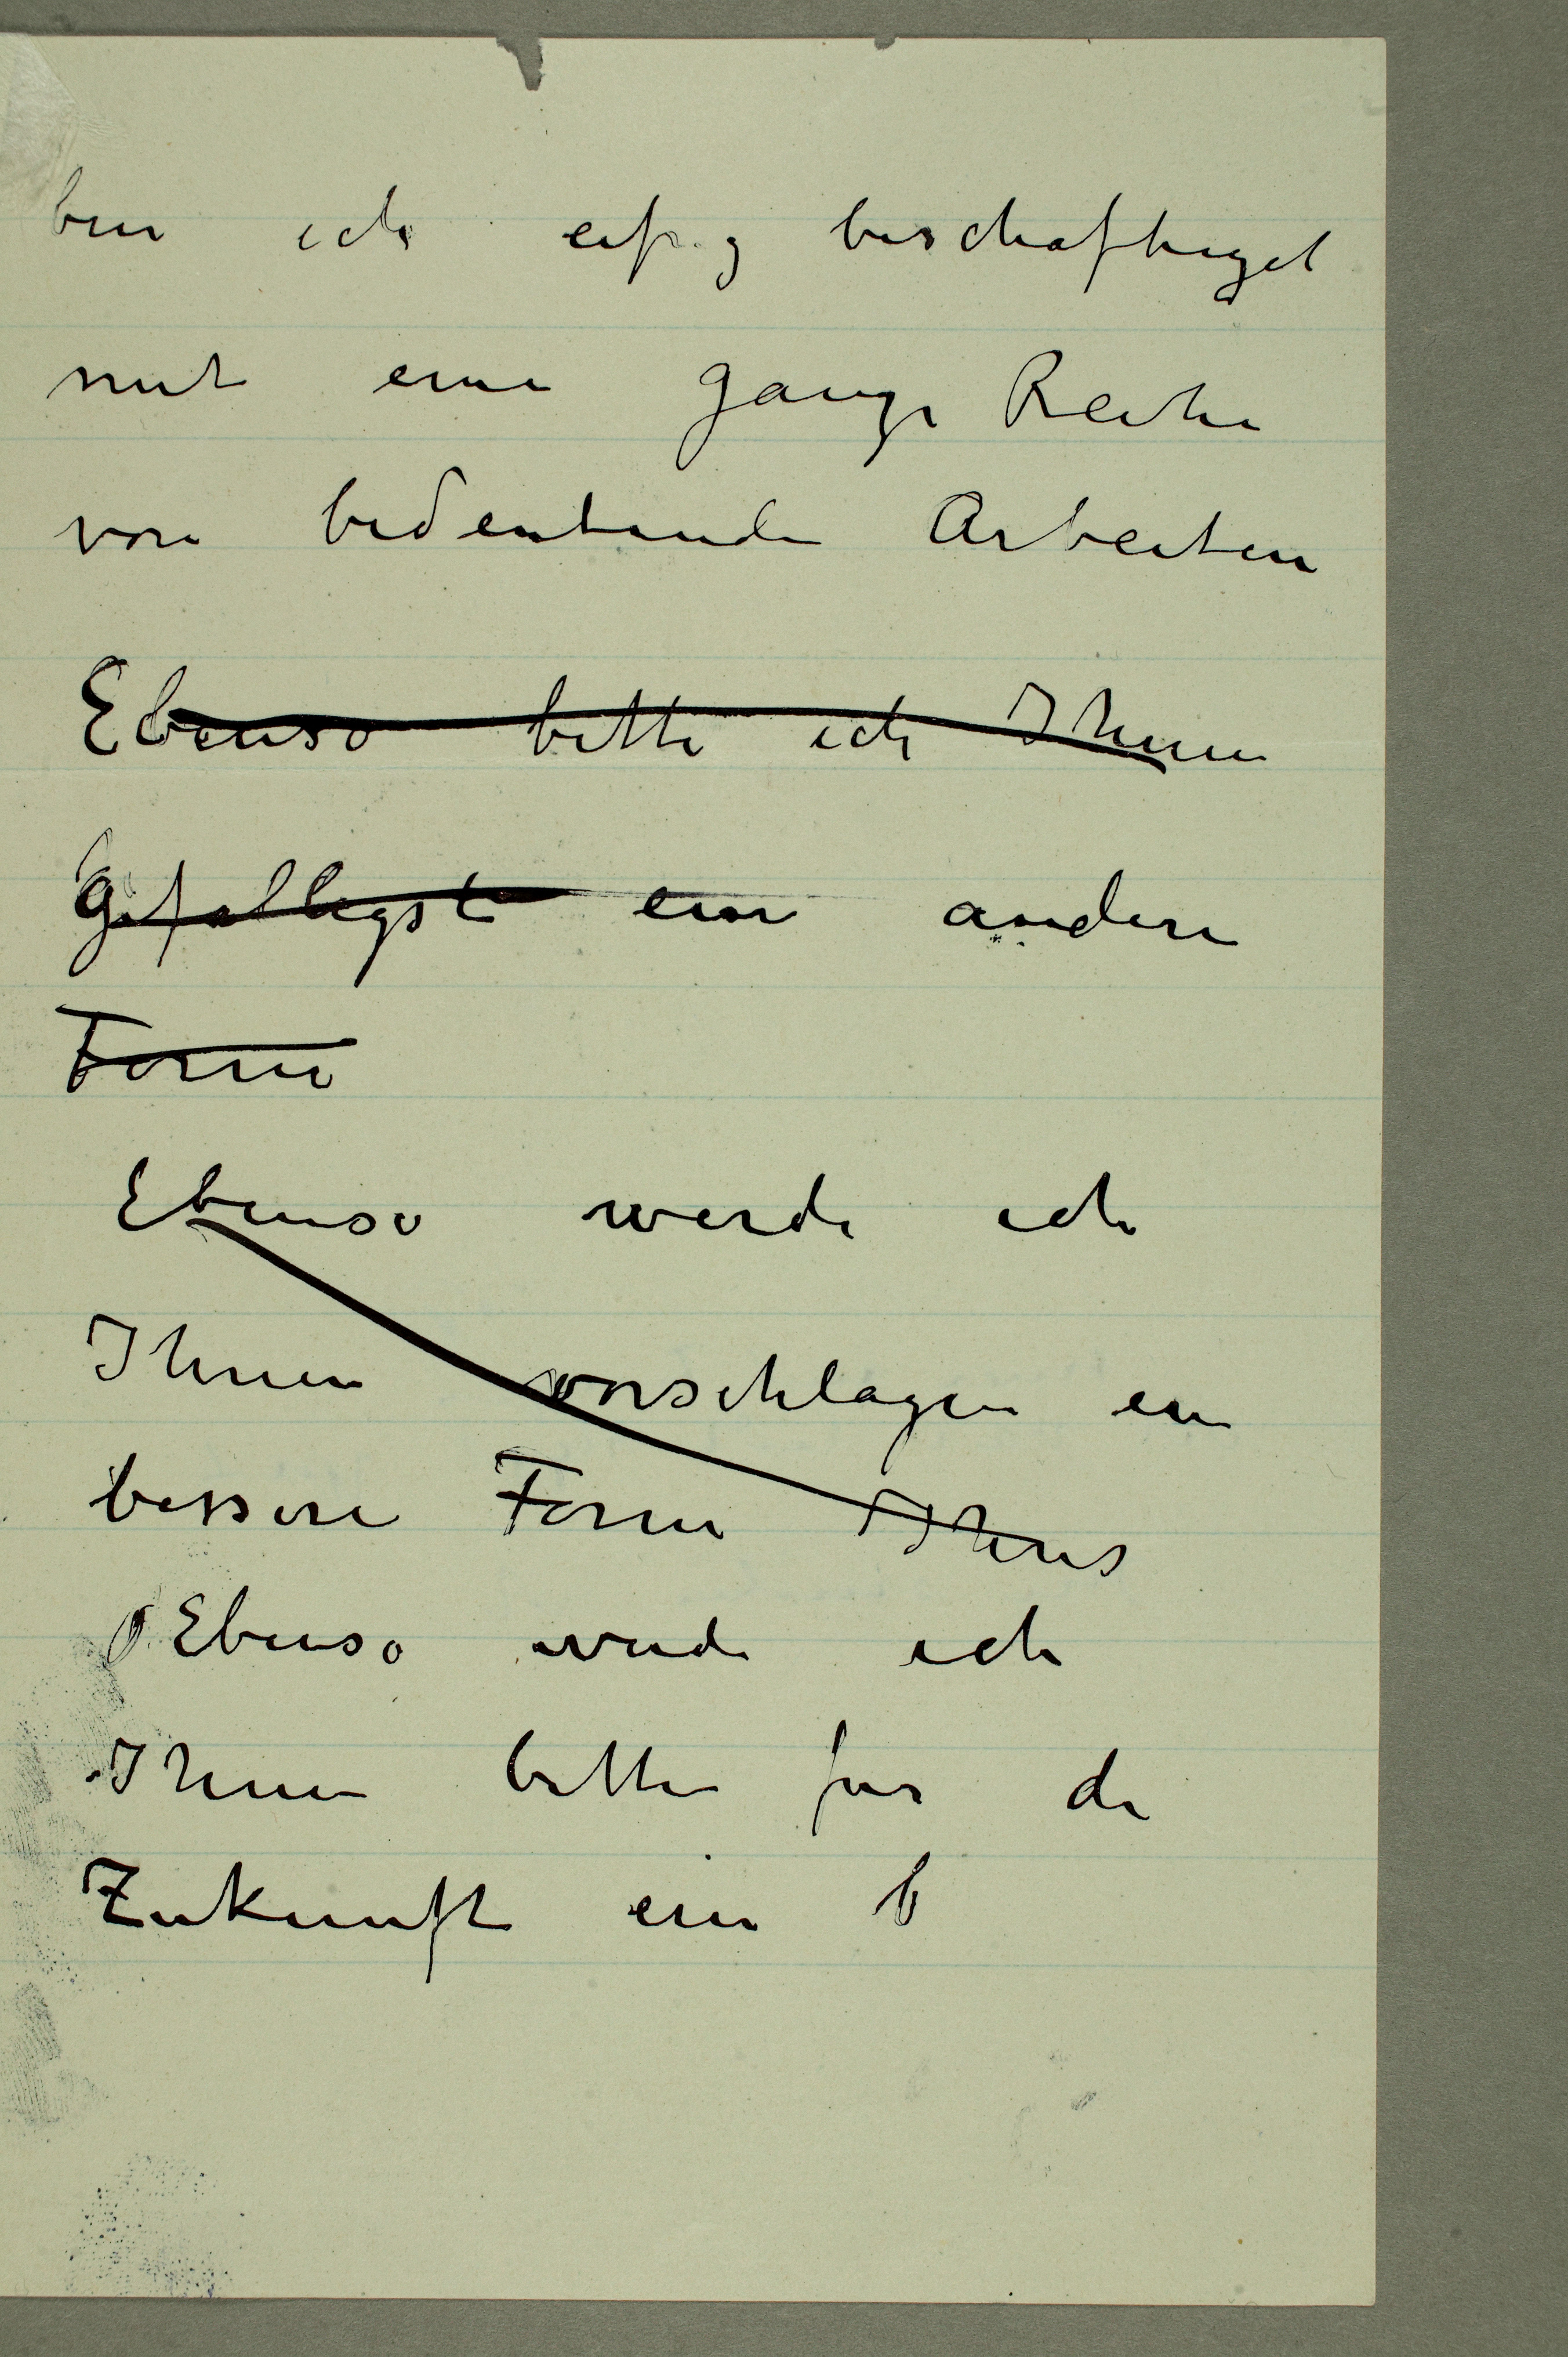 bin ich eifrig beschaftiget
mit eine ganze Reihe
von bedeutende Arbeiten
Ebenso bitte ich Ihnen
gefalligst eine andere
Form
Ebenso werde ich
Ihnen vorschlagen ein
bessere Form Ihres
Ebenso werde ich
Ihnen bitten fur die
Zukunft ein b